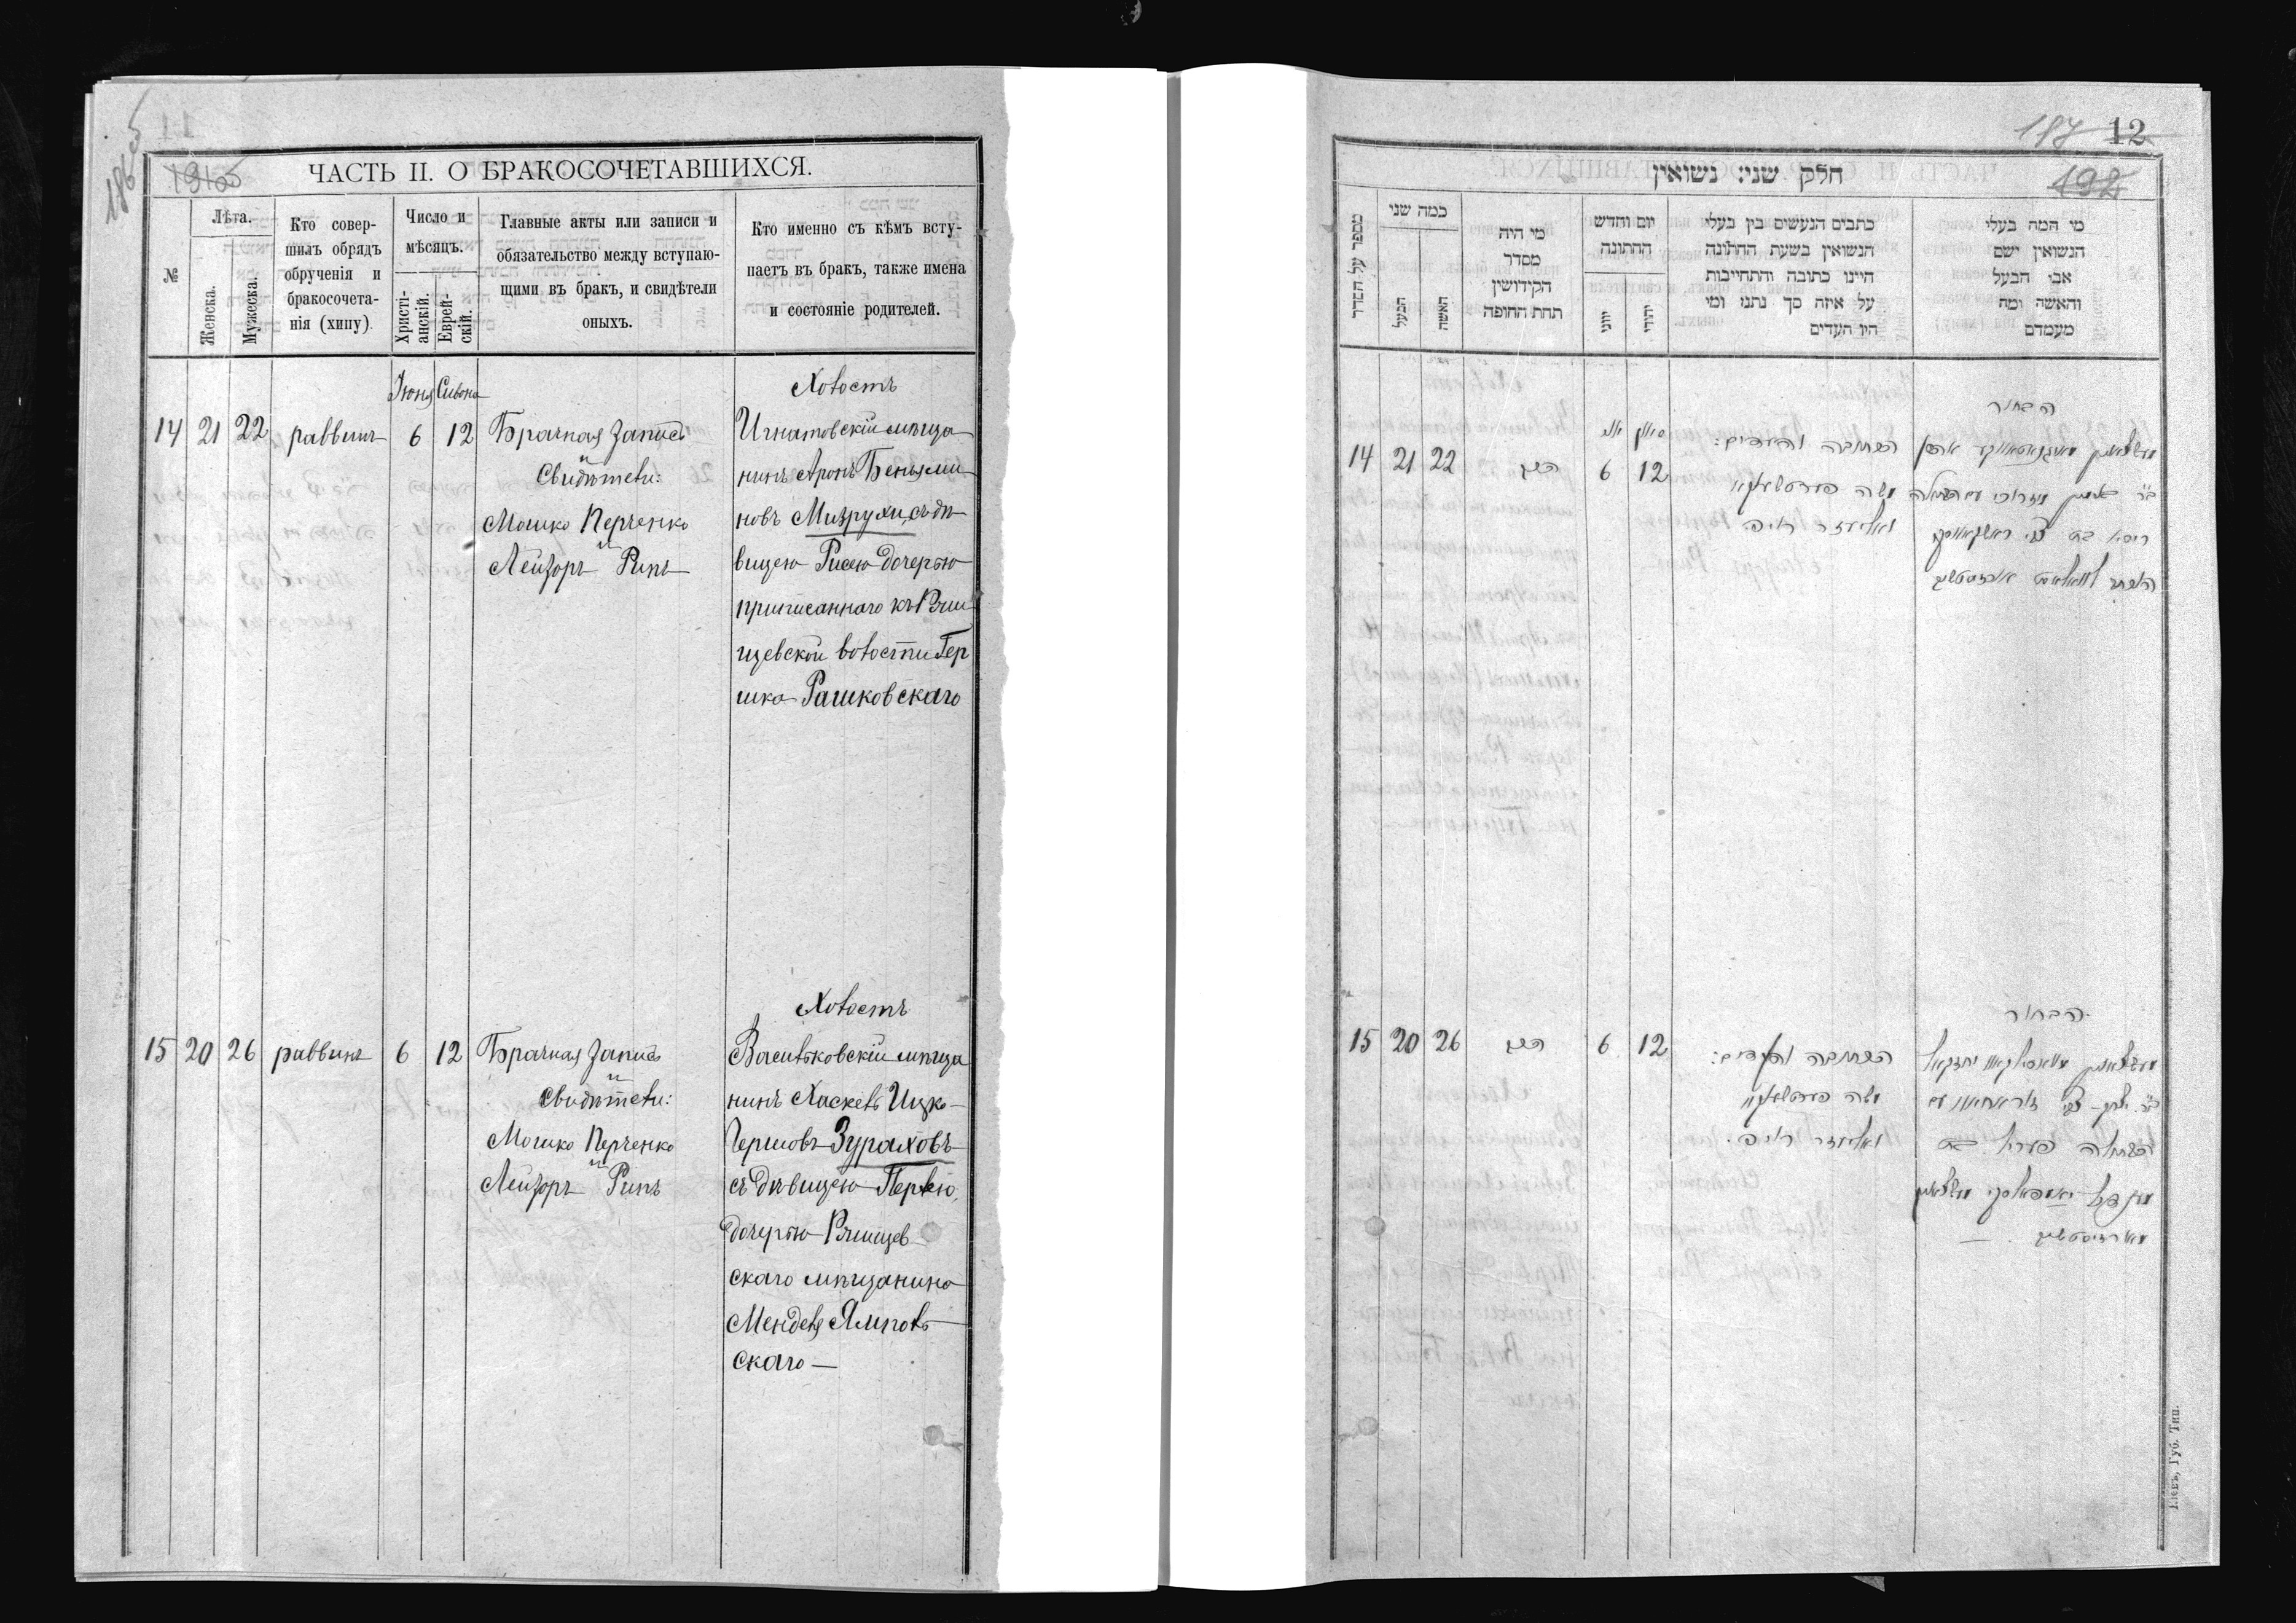 5
186
ЧАСТЬ II. О БРАКОСОЧЕТАВШИХСЯ.
№
Лѣта.
Женска.
Мужеска.
Кто совер-
шилъ обрядъ
обрученія и
бракосочета-
нія (хипу)
Число и
мѣсяцъ.
Христі-
анскій.
Еврей-
скій.
Главные акты или записи и
обязательство между вступаю-
щими въ бракъ, и свидѣтели
оныхъ.
Кто именно съ кѣмъ всту-
паетъ въ бракъ, также имена
и состояніе родителей.
Іюня Сивона
14 21 22 раввинъ 6 12
Брачная запись
и
Свидѣтели:
Мошко Перченко
и
Лейзоръ Рипъ
Холостъ
Игнатовскій мѣща
нинъ Аронъ Беньями
новъ Мизрухи, съ дѣ
вицею Рисею дочерью
приписаннаго къ Ржи
щевской волости Гер
шка Рашковскаго
15 20 26 раввинъ 6 12
Брачная запись
и
Свидѣтели:
Мошко Перченко
и
Лейзоръ Рипъ
Холостъ
Васильковскій мѣща
нинъ Хаскель Ицко-
Гершовъ Зураховъ
съ дѣвицею Перлею,
дочерью Ржищев
скаго мѣщанина
Менделя Ямполь
скаго —
187 12
192
חלק שני: נשואין
מספר על הסדר
כמה שני
הבעל
האשה
מי היה
מסדר
הקידושין
תחת החופה
יום וחדש
החתונה
יווני
יהודי
כתבים הנעשים בין בעלי
הנשואין בשעת החתונה
היינו כתובה והתחייבות
על איזה סך נתנו ומי
היו העדים
מי המה בעלי
הנשואין ושם
אבי הבעל
והאשה ומה
מעמדם
14 21 22 הרב 6 12
סיון
הכתובה והעדים:
משה פערטשענקא
ואליעזר ריפ.
הבחור
ריסא בת צבי ראשקאווסקי
15 20 26 הרב 6 12
הכתובה והעדים:
משה פערטשענקא
ואליעזר ריפ.
הבחור
הבתולה פערל בת
Кіевъ, Губ. Тип.